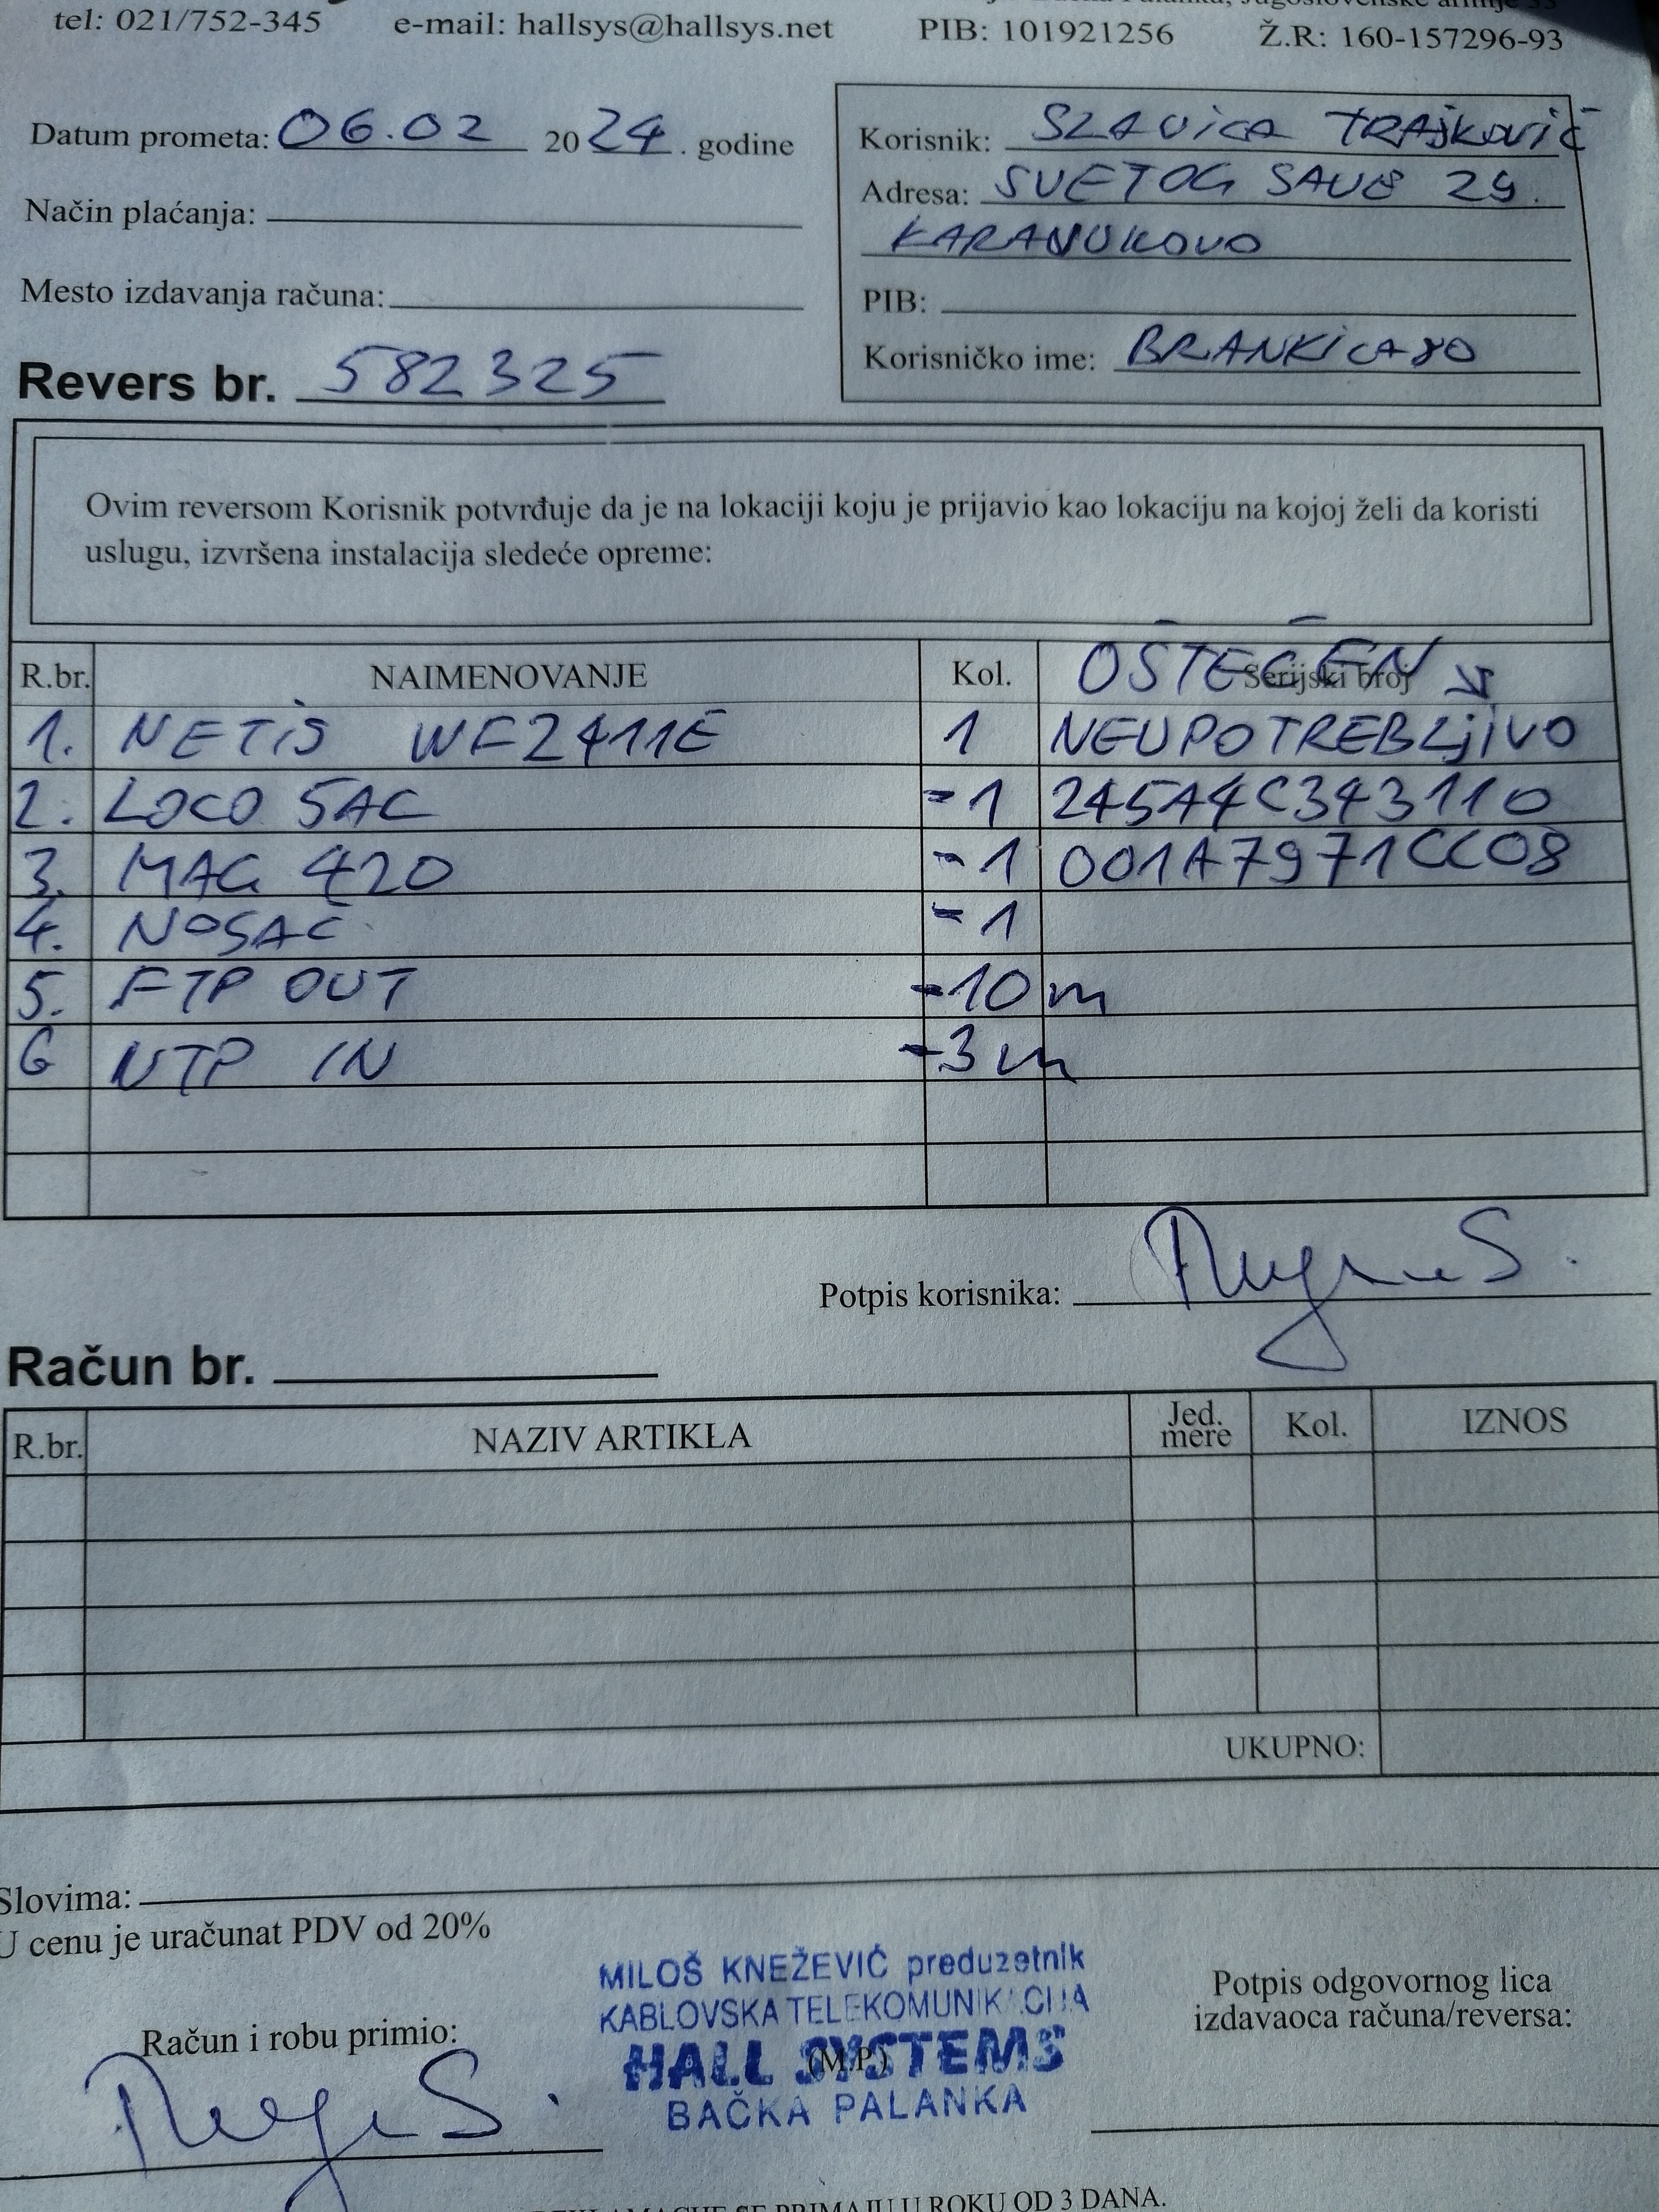 tel: 021/752-345 e-mail: hallsys@hallsys.net PIB: 101921256 Ž.R: 160-157296-93
Datum prometa: 06.02 2024. godine
Način plaćanja:
Mesto izdavanja računa:
Revers br. 582325
Korisnik: SLAVICA TRAJKOVIĆ
Adresa: SVETOG SAVE 29.
KARAVUKOVO
PIB:
Korisničko ime: BRANKICA80
Ovim reversom Korisnik potvrđuje da je na lokaciji koju je prijavio kao lokaciju na kojoj želi da koristi
uslugu, izvršena instalacija sledeće opreme:
R.br. NAIMENOVANJE Kol. Serijski broj OŠTEĆEN
1. NETIS WF2411E 1 NEUPOTREBLJIVO
2. LOCO 5AC -1 245A4C343110
3. MAG 420 -1 001A7971CC08
4. NOSAČ -1
5. FTP OUT -10m
6 UTP IN -3m
Potpis korisnika:
Račun br.
R.br. NAZIV ARTIKLA Jed. mere Kol. IZNOS
UKUPNO:
Slovima:
U cenu je uračunat PDV od 20%
MILOŠ KNEŽEVIĆ preduzetnik
KABLOVSKA TELEKOMUNIKACIJA
HALL SYSTEMS
(M.P.)
BAČKA PALANKA
Račun i robu primio:
Potpis odgovornog lica
izdavaoca računa/reversa:
SE PRIMAJU U ROKU OD 3 DANA.